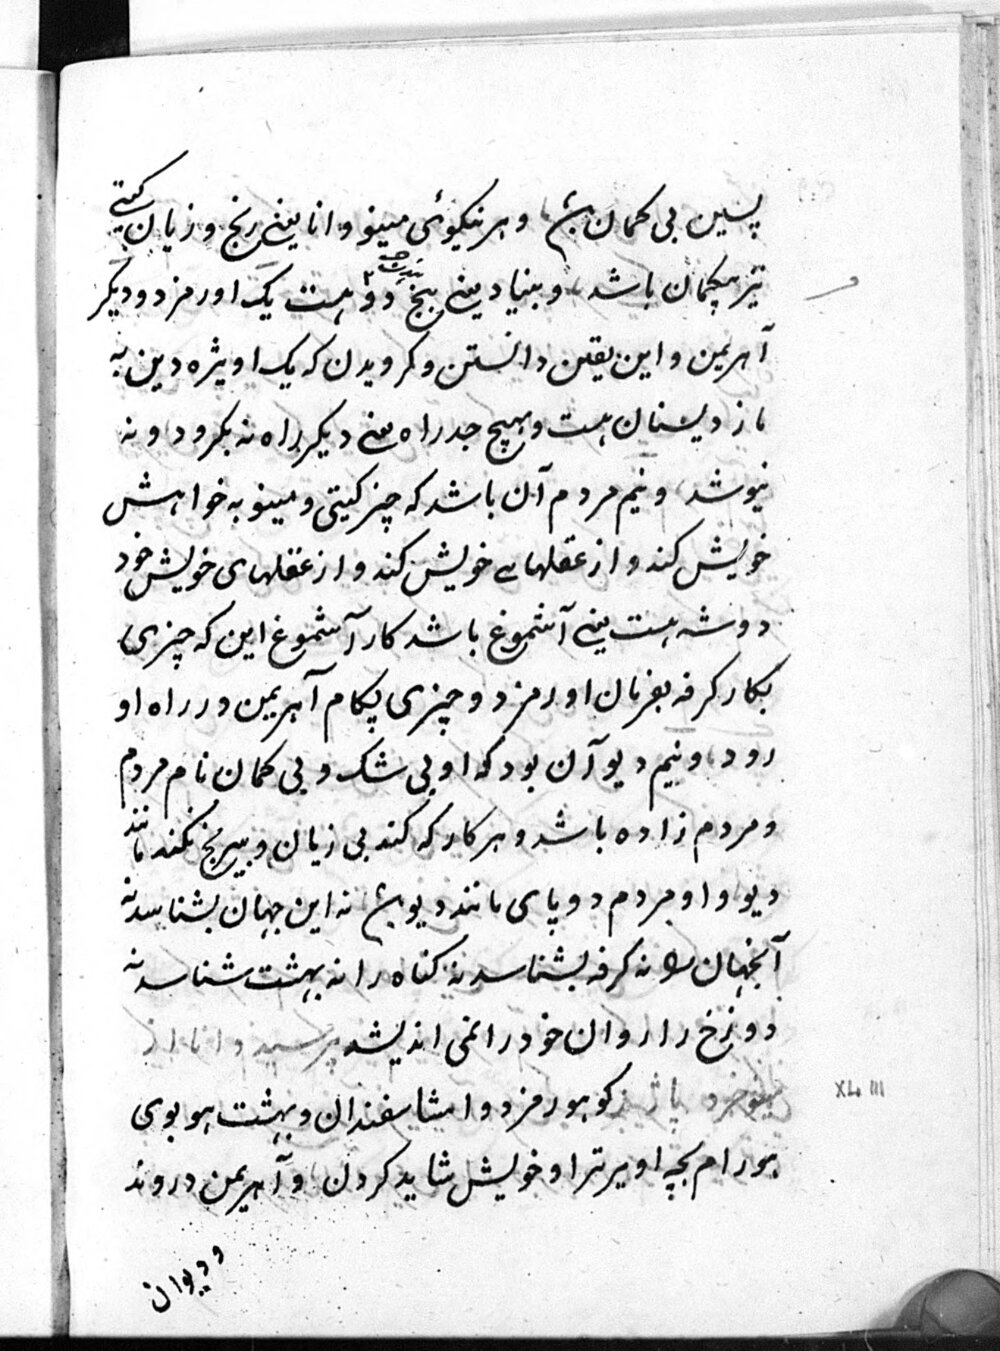 پسین بی کمان بش و هر نیکوئی مینو و انا یینی رنج و زیان کیتی
نیز بیکمان باشد و بنیاد یینی بیخ دو هست یک اورمزد و دیکر
آهریمن و این یقین دانستن و کرویدن که یک اویژه دین به
مازدیسنان هست و بهیچ جدراه یینی دیکر راه نه بکرود و نه
نیوشد و نیم مردم آن باشد که چیز کیتی و مینو به خواهش
خویش کند و از عقلهای خویش کند و از عقلهای خویش خود
دوشه هست یینی آشموغ باشد کار آشموغ این که چیزی
بکار کرفه بفرمان اورمزد و چیزی بکام آهریمن در راه او
رود و نیم دیو آن بود که او بی شک و بی کمان نام مردم
و مردم زاده باشد و هر کار که کند بی زیان و بیرنج نکند مانند
دیو و او مردم دو پای مانند دیو بش نه این جهان بشناسد نه
آنجهان را نه کرفه بشناسد نه کناه را نه بهشت شناسد نه
دوزخ را روان خود را نمی اندیشد پرسید دانا از
مینوخرد کو هورمزد و امشاسفندان و بهشت هوبوی
هورام بچه اویرتر او خویش شاید کردن و آهریمن دروند
و دیوان
XLIII